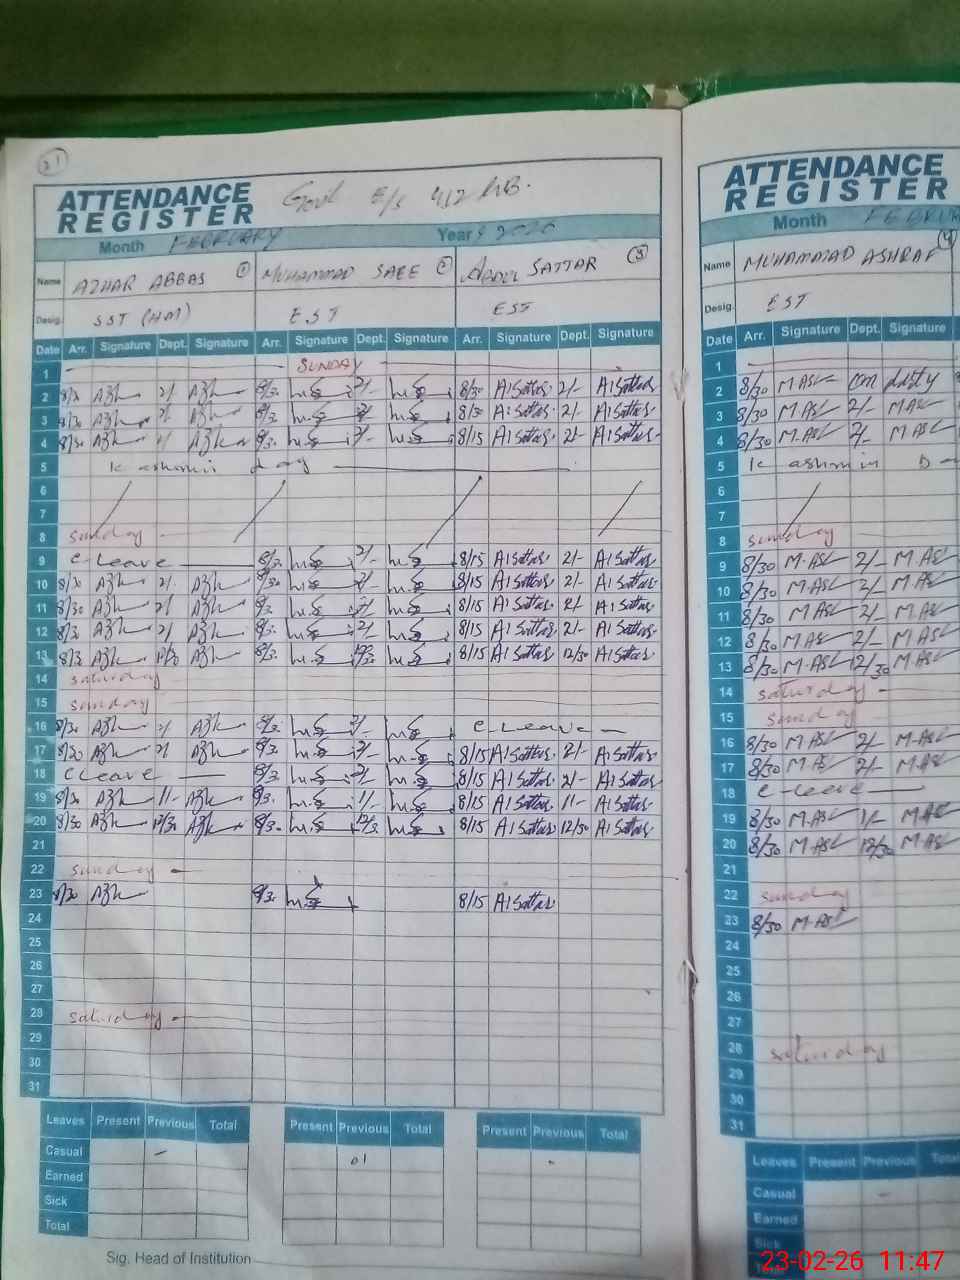 21
ATTENDANCE
REGISTER
Govt E/S 412
Month FEBRUARY Year 2026
Name AZHAR ABBAS 1 MUHAMMAD SAEE 2 ABDUL SATTAR 3
Desig. SST (HM) EST EST
Date Arr. Signature Dept. Signature Arr. Signature Dept. Signature Arr. Signature Dept. Signature
1 SUNDAY
2 8/30 Azh 2/- Azh 8/3. 2/- 8/30 A.Sattar 2/- A.Sattar
3 8/30 Azh 2/- Azh 8/3. 2/- 8/30 A.Sattar 2/- A.Sattar
4 8/30 Azh 2/- Azh 8/3. 2/- 8/15 A.Sattar 2/- A.Sattar
5 Kashmir day
6
7
8 sunday
9 C-Leave 8/3. 2/- 8/15 A.Sattar 2/- A.Sattar
10 8/30 Azh 2/- Azh 8/30 2/- 8/15 A.Sattar 2/- A.Sattar
11 8/30 Azh 2/- Azh 8/3. 2/- 8/15 A.Sattar 2/- A.Sattar
12 8/30 Azh 2/- Azh 8/3. 2/- 8/15 A.Sattar 2/- A.Sattar
13 8/30 Azh 12/30 Azh 8/3. 12/30 8/15 A.Sattar 12/30 A.Sattar
14 saturday
15 sunday
16 8/30 Azh 2/- Azh 8/3. 2/- C-Leave
17 8/30 Azh 2/- Azh 8/3. 2/- 8/15 A.Sattar 2/- A.Sattar
18 C Leave 8/3. 2/- 8/15 A.Sattar 2/- A.Sattar
19 8/30 Azh 11- Azh 8/3. 1/- 8/15 A.Sattar 11- A.Sattar
20 8/30 Azh 12/30 Azh 8/30 12/3. 8/15 A.Sattar 12/30 A.Sattar
21
22 sunday
23 8/30 Azh 8/3. 8/15 A.Sattar
24
25
26
27
28 saturday
29
30
31
Leaves Present Previous Total Present Previous Total Present Previous Total
Casual - 01 -
Earned
Sick
Total
Sig. Head of Institution
ATTENDANCE
REGISTER
Month FEBRU
Name MUHAMMAD ASHRAF 4
Desig. EST
Date Arr. Signature Dept. Signature
1
2 8/30 M.Asl duty
3 8/30 M.Asl 2/- M.Asl
4 8/30 M.Asl 2/- M.Asl
5 Kashmir D
6
7
8 sunday
9 8/30 M.Asl 2/- M.Asl
10 8/30 M.Asl 2/- M.Asl
11 8/30 M.Asl 2/- M.Asl
12 8/30 M.Asl 2/- M.Asl
13 8/30 M.Asl 12/30 M.Asl
14 saturday
15 sunday
16 8/30 M.Asl 2/- M.Asl
17 8/30 M.Asl 2/- M.Asl
18 C-Leave
19 8/30 M.Asl 1/- M.Asl
20 8/30 M.Asl 12/30 M.Asl
22 sunday
23 8/30 M.Asl
24
25
26
27
28 saturday
29
30
31
Leaves Present Previous Total
Casual -
Earned
Sick
23-02-26 11:47